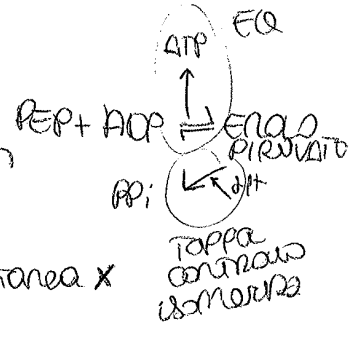 EQ
ATP
PEP + ADP ⇌ ENOLO
PIRUVATO
PPi
TAPPA
CONTROLLO
ISOMERASI
TANEA X